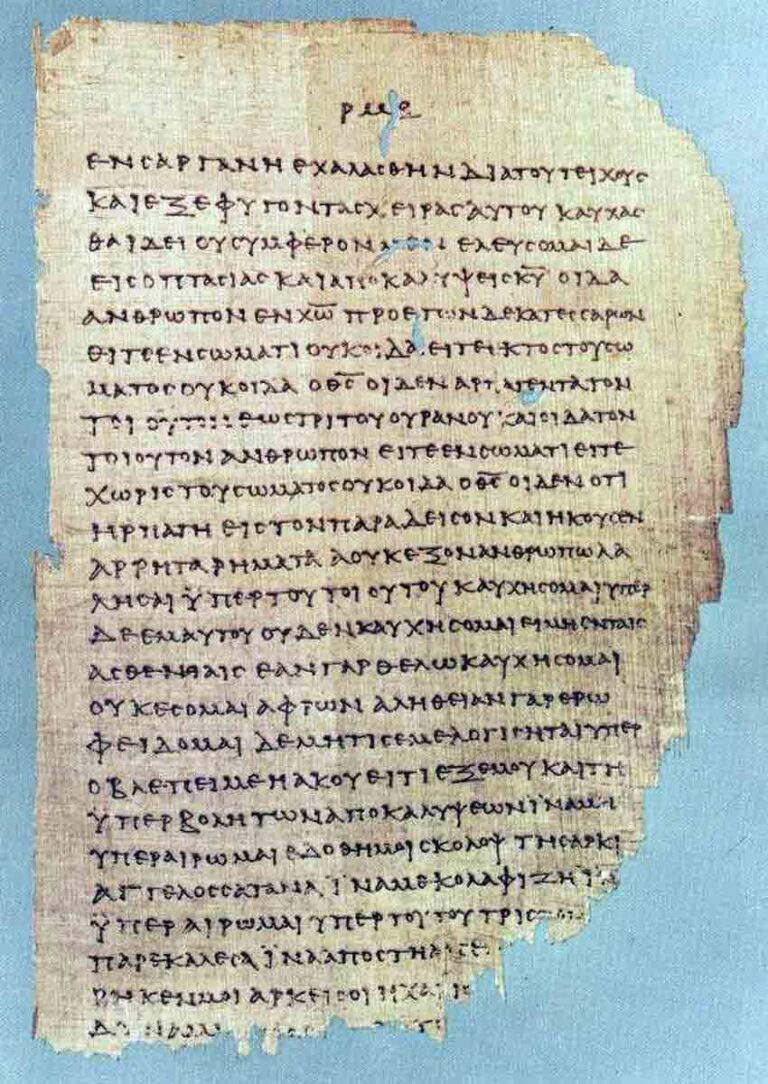 ΡΜΕ
ΕΝ ϹΑΡΓΑΝΗ ΕΧΑΛΑϹΘΗΝ ΔΙΑ ΤΟΥ ΤΕΙΧΟΥϹ
ΚΑΙ ΕΞΕΦΥΓΟΝ ΤΑϹ ΧΕΙΡΑϹ ΑΥΤΟΥ ΚΑΥΧΑϹ
ΘΑΙ ΔΕΙ ΟΥ ϹΥΜΦΕΡΟΝ ΜΕΝ ΕΛΕΥϹΟΜΑΙ ΔΕ
ΕΙϹ ΟΠΤΑϹΙΑϹ ΚΑΙ ΑΠΟΚΑΛΥΨΕΙϹ Κ̅Υ̅ ΟΙΔΑ
ΑΝΘΡΩΠΟΝ ΕΝ Χ̅Ω̅ ΠΡΟ ΕΤΩΝ ΔΕΚΑΤΕϹϹΑΡΩΝ
ΕΙΤΕ ΕΝ ϹΩΜΑΤΙ ΟΥΚ ΟΙΔΑ ΕΙΤΕ ΕΚΤΟϹ ΤΟΥ ϹΩ
ΜΑΤΟϹ ΟΥΚ ΟΙΔΑ Ο Θ̅Ϲ̅ ΟΙΔΕΝ ΑΡΠΑΓΕΝΤΑ ΤΟΝ
ΤΟΙΟΥΤΟΝ ΕΩϹ ΤΡΙΤΟΥ ΟΥΡΑΝΟΥ ΚΑΙ ΟΙΔΑ ΤΟΝ
ΤΟΙΟΥΤΟΝ ΑΝΘΡΩΠΟΝ ΕΙΤΕ ΕΝ ϹΩΜΑΤΙ ΕΙΤΕ
ΧΩΡΙϹ ΤΟΥ ϹΩΜΑΤΟϹ ΟΥΚ ΟΙΔΑ Ο Θ̅Ϲ̅ ΟΙΔΕΝ ΟΤΙ
ΗΡΠΑΓΗ ΕΙϹ ΤΟΝ ΠΑΡΑΔΕΙϹΟΝ ΚΑΙ ΗΚΟΥϹΕΝ
ΑΡΡΗΤΑ ΡΗΜΑΤΑ Α ΟΥΚ ΕΞΟΝ ΑΝΘΡΩΠΩ ΛΑ
ΛΗϹΑΙ ΫΠΕΡ ΤΟΥ ΤΟΙΟΥΤΟΥ ΚΑΥΧΗϹΟΜΑΙ ΥΠΕΡ
ΔΕ ΕΜΑΥΤΟΥ ΟΥΔΕΝ ΚΑΥΧΗϹΟΜΑΙ ΕΙ ΜΗ ΕΝ ΤΑΙϹ
ΑϹΘΕΝΗΑΙϹ ΕΑΝ ΓΑΡ ΘΕΛΩ ΚΑΥΧΗϹΟΜΑΙ
ΟΥΚ ΕϹΟΜΑΙ ΑΦΡΩΝ ΑΛΗΘΕΙΑΝ ΓΑΡ ΕΡΩ
ΦΕΙΔΟΜΑΙ ΔΕ ΜΗ ΤΙϹ ΕΜΕ ΛΟΓΙϹΗΤΑΙ ΥΠΕΡ
Ο ΒΛΕΠΕΙ ΜΕ Η ΑΚΟΥΕΙ ΤΙ ΕΞ ΕΜΟΥ ΚΑΙ ΤΗ
ΫΠΕΡΒΟΛΗ ΤΩΝ ΑΠΟΚΑΛΥΨΕΩΝ ΪΝΑ ΜΗ
ΥΠΕΡΑΙΡΩΜΑΙ ΕΔΟΘΗ ΜΟΙ ϹΚΟΛΟΨ ΤΗ ϹΑΡΚΙ
ΑΓΓΕΛΟϹ ϹΑΤΑΝΑ ΪΝΑ ΜΕ ΚΟΛΑΦΙΖΗ ΪΝΑ
ΫΠΕΡΑΙΡΩΜΑΙ ΥΠΕΡ ΤΟΥΤΟΥ ΤΡΙϹ
ΠΑΡΕΚΑΛΕϹΑ ΪΝΑ ΑΠΟϹΤΗ
ΡΗΚΕΝ ΜΟΙ ΑΡΚΕΙ ϹΟΙ Η ΧΑΡΙϹ